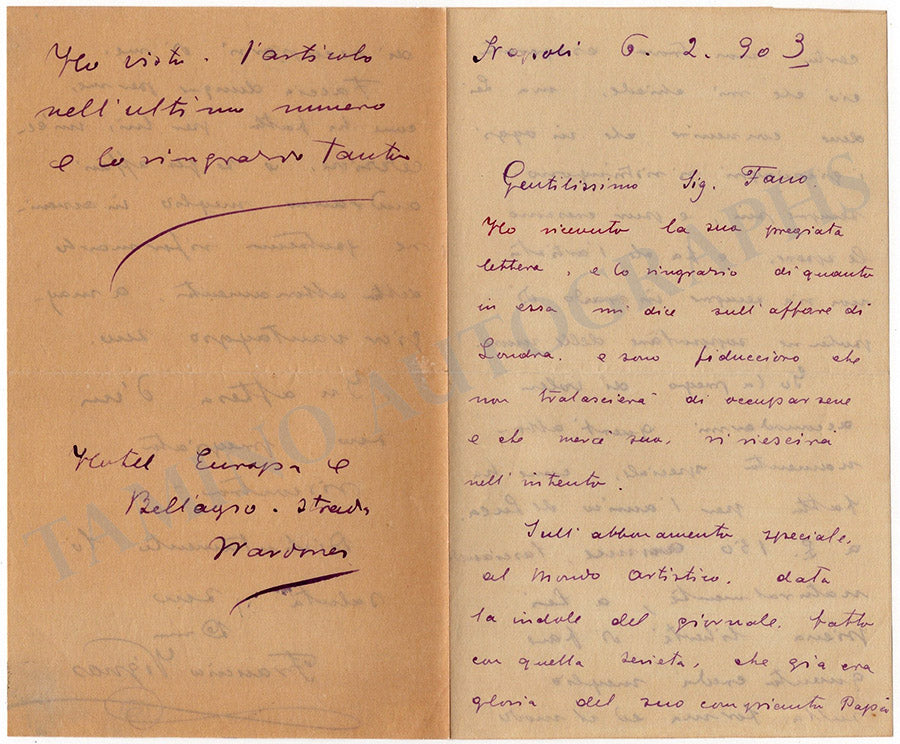 Ho visto. l'articolo
nell'ultimo numero
e lo ringrazio tanto
Hotel Europa e
Bellagio. Strada
Nardones
Napoli 6. 2. 903
Gentilissimo Sig. Fano.
Ho ricevuto la sua pregiata
lettera, e lo ringrazio di quanto
in essa mi dice sull'affare di
Londra. e sono fiduccioso che
non tralascierà di occuparsene
e che mercè sua, si riescirà
nell'intento.
Sull'abbonamento speciale,
al Mondo artistico. data
la indole del giornale. fatto
con quella serietà, che già era
gloria del suo compianto Papà
TAMINO AUTOGRAPHS